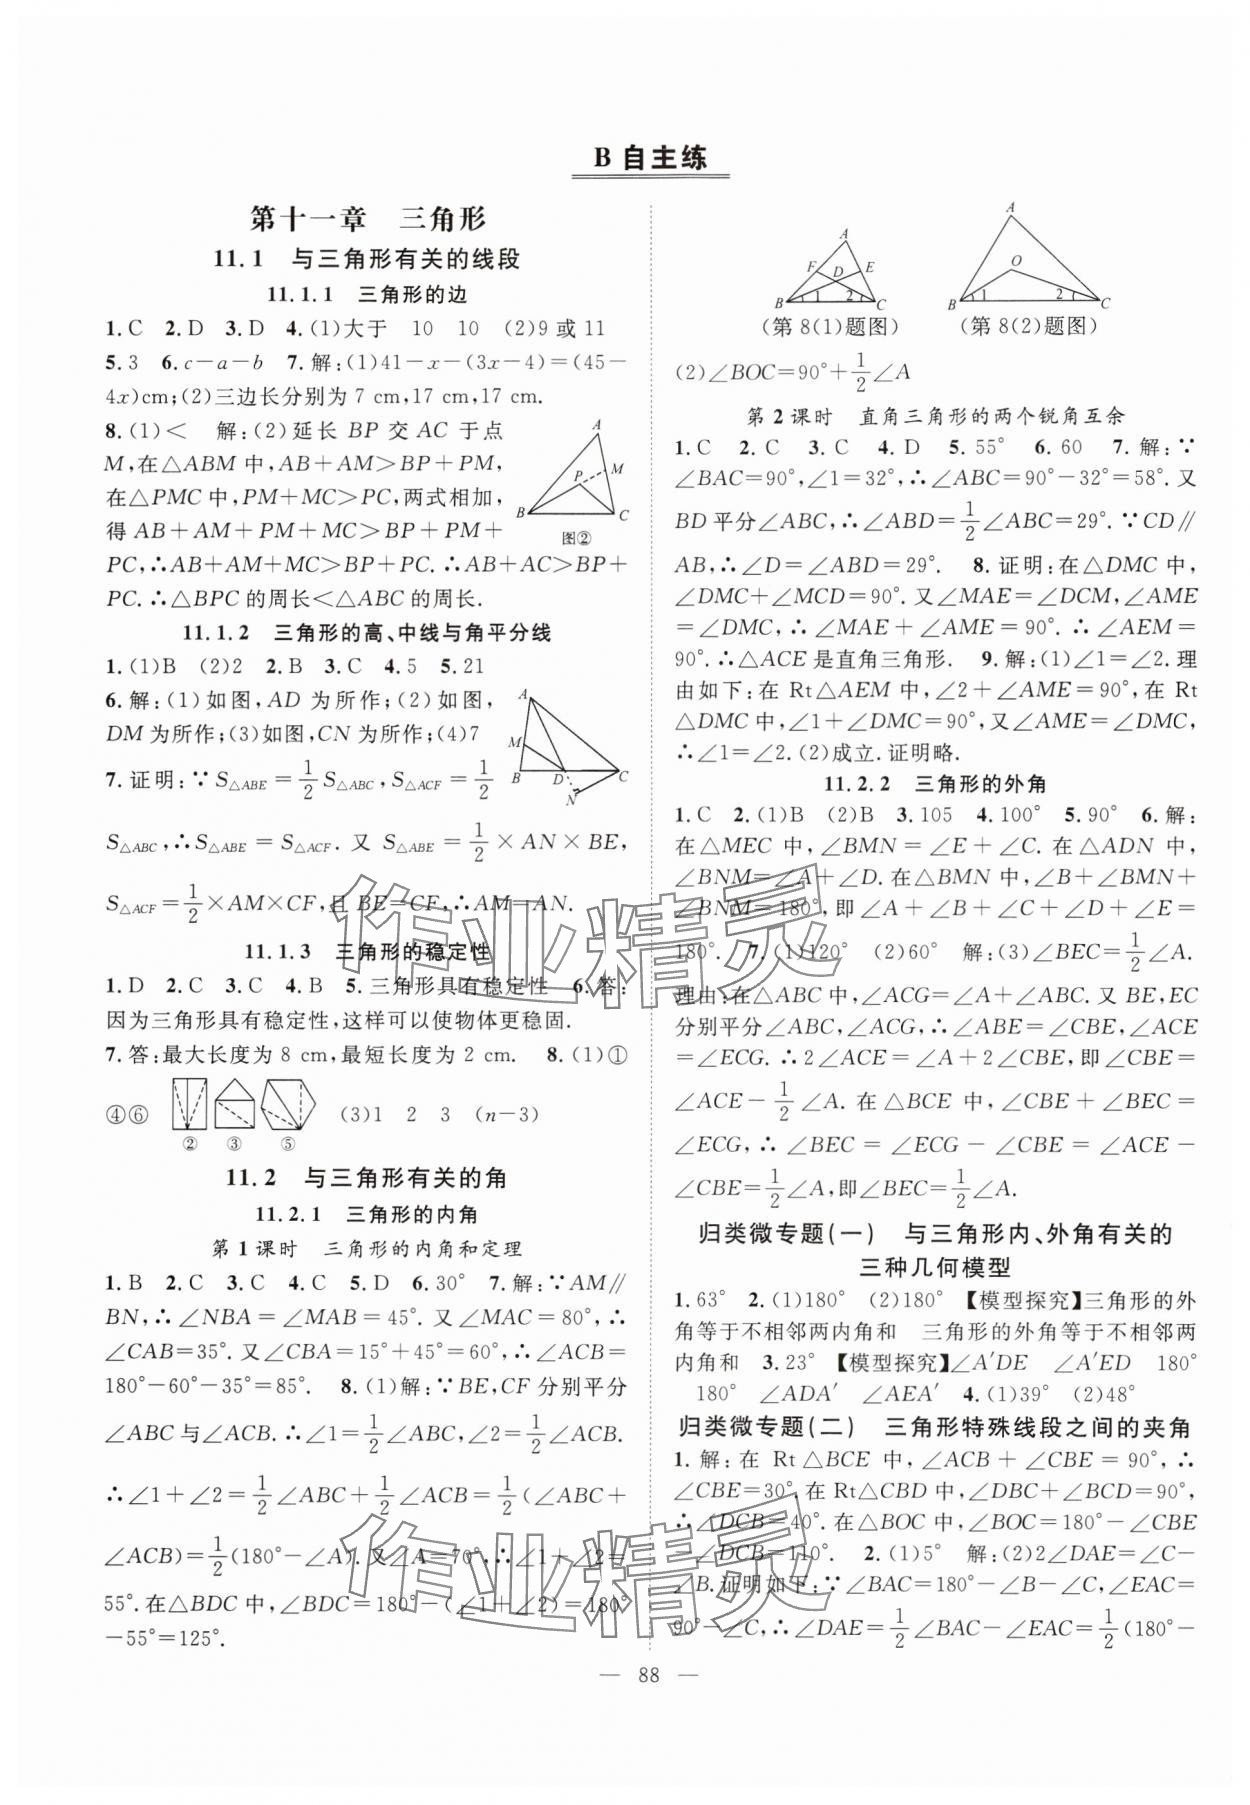 B 自主练
第十一章 三角形
11.1 与三角形有关的线段
11.1.1 三角形的边
1.C 2.D 3.D 4.(1)大于 10 10 (2)9 或 11
5.3 6.c-a-b 7.解:(1)41-x-(3x-4)=(45-
4x)cm;(2)三边长分别为 7 cm,17 cm,17 cm.
8.(1)< 解:(2)延长 BP 交 AC 于点
M,在△ABM 中,AB+AM>BP+PM,
在△PMC 中,PM+MC>PC,两式相加,
得 AB+AM+PM+MC>BP+PM+
PC,∴AB+AM+MC>BP+PC.∴AB+AC>BP+
PC.∴△BPC 的周长<△ABC 的周长.
A
M
P
B
C
图②
11.1.2 三角形的高、中线与角平分线
1.(1)B (2)2 2.B 3.C 4.5 5.21
6.解:(1)如图,AD 为所作;(2)如图,
DM 为所作;(3)如图,CN 为所作;(4)7
A
M
B D C
N
7.证明:∵S△ABE=1/2 S△ABC,S△ACF=1/2
S△ABC,∴S△ABE=S△ACF. 又 S△ABE=1/2×AN×BE,
S△ACF=1/2×AM×CF,且 BE=CF,∴AM=AN.
11.1.3 三角形的稳定性
1.D 2.C 3.C 4.B 5.三角形具有稳定性 6.答:
因为三角形具有稳定性,这样可以使物体更稳固.
7.答:最大长度为 8 cm,最短长度为 2 cm. 8.(1)①
④⑥ (3)1 2 3 (n-3)
② ③ ⑤
11.2 与三角形有关的角
11.2.1 三角形的内角
第 1 课时 三角形的内角和定理
1.B 2.C 3.C 4.C 5.D 6.30° 7.解:∵AM∥
BN,∴∠NBA=∠MAB=45°.又∠MAC=80°,∴
∠CAB=35°.又∠CBA=15°+45°=60°,∴∠ACB=
180°-60°-35°=85°. 8.(1)解:∵BE,CF 分别平分
∠ABC与∠ACB.∴∠1=1/2∠ABC,∠2=1/2∠ACB.
∴∠1+∠2=1/2∠ABC+1/2∠ACB=1/2(∠ABC+
∠ACB)=1/2(180°-∠A).又∠A=70°,∴∠1+∠2=
55°.在△BDC 中,∠BDC=180°-(∠1+∠2)=180°
-55°=125°.
A
F D E
B 1 2 C
(第 8(1)题图)
A
O
B 1 2 C
(第 8(2)题图)
(2)∠BOC=90°+1/2∠A
第 2 课时 直角三角形的两个锐角互余
1.C 2.C 3.C 4.D 5.55° 6.60 7.解:∵
∠BAC=90°,∠1=32°,∴∠ABC=90°-32°=58°.又
BD平分∠ABC,∴∠ABD=1/2∠ABC=29°.∵CD∥
AB,∴∠D=∠ABD=29°. 8.证明:在△DMC 中,
∠DMC+∠MCD=90°.又∠MAE=∠DCM,∠AME
=∠DMC,∴∠MAE+∠AME=90°.∴∠AEM=
90°.∴△ACE 是直角三角形. 9.解:(1)∠1=∠2.理
由如下:在 Rt△AEM 中,∠2+∠AME=90°,在 Rt
△DMC 中,∠1+∠DMC=90°,又∠AME=∠DMC,
∴∠1=∠2.(2)成立.证明略.
11.2.2 三角形的外角
1.C 2.(1)B (2)B 3.105 4.100° 5.90° 6.解:
在△MEC 中,∠BMN=∠E+∠C.在△ADN 中,
∠BNM=∠A+∠D.在△BMN 中,∠B+∠BMN+
∠BNM=180°,即∠A+∠B+∠C+∠D+∠E=
180°. 7.(1)120° (2)60° 解:(3)∠BEC=1/2∠A.
理由:在△ABC 中,∠ACG=∠A+∠ABC.又 BE,EC
分别平分∠ABC,∠ACG,∴∠ABE=∠CBE,∠ACE
=∠ECG.∴2∠ACE=∠A+2∠CBE,即∠CBE=
∠ACE-1/2∠A.在△BCE 中,∠CBE+∠BEC=
∠ECG,∴∠BEC=∠ECG-∠CBE=∠ACE-
∠CBE=1/2∠A,即∠BEC=1/2∠A.
归类微专题(一) 与三角形内、外角有关的
三种几何模型
1.63° 2.(1)180° (2)180° 【模型探究】三角形的外
角等于不相邻两内角和 三角形的外角等于不相邻两
内角和 3.23° 【模型探究】∠A′DE ∠A′ED 180°
180° ∠ADA′ ∠AEA′ 4.(1)39° (2)48°
归类微专题(二) 三角形特殊线段之间的夹角
1.解:在 Rt△BCE 中,∠ACB+∠CBE=90°,∴
∠CBE=30°.在 Rt△CBD 中,∠DBC+∠BCD=90°,
∴∠DCB=40°.在△BOC 中,∠BOC=180°-∠CBE
-∠DCB=110°. 2.(1)5° 解:(2)2∠DAE=∠C-
∠B.证明如下:∵∠BAC=180°-∠B-∠C,∠EAC=
90°-∠C,∴∠DAE=1/2∠BAC-∠EAC=1/2(180°-
— 88 —
作业精灵
作业精灵